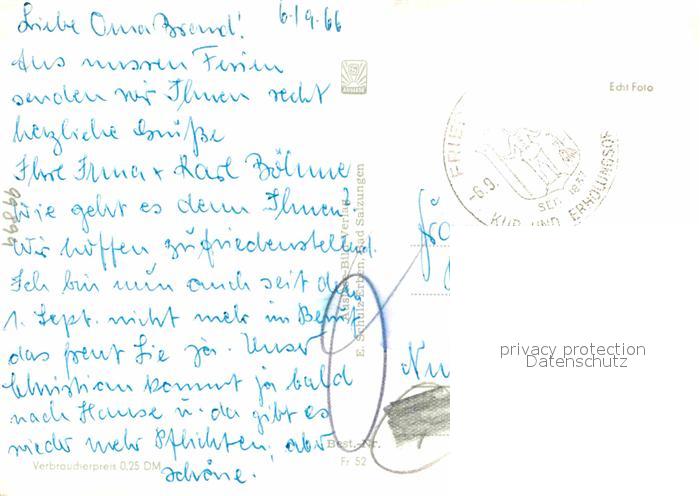 6/9.66
Liebe Oma Brand!
Aus unseren Ferien
senden wir Ihnen recht
herzliche Grüße
Ihre Irma + Karl Böhme
Wie geht es denn Ihnen?
Wir hoffen zufriedenstellend.
Ich bin nun auch seit dem
1. Sept. nicht mehr im Beruf
das freut Sie ja. Unser
Christian kommt ja bald
nach Hause u. da gibt es
wieder mehr Pflichten, aber
schöne.
Verbraucherpreis 0,25 DM
Best.-Nr.
Fr 52
Auslese-Bild-Verlag
E. Schulz Erben, Bad Salzungen
AUSLESE
Echt Foto
FRIED
-6.9.
SEIT 1837
KUR UND ERHOLUNGSORT
privacy protection
Datenschutz